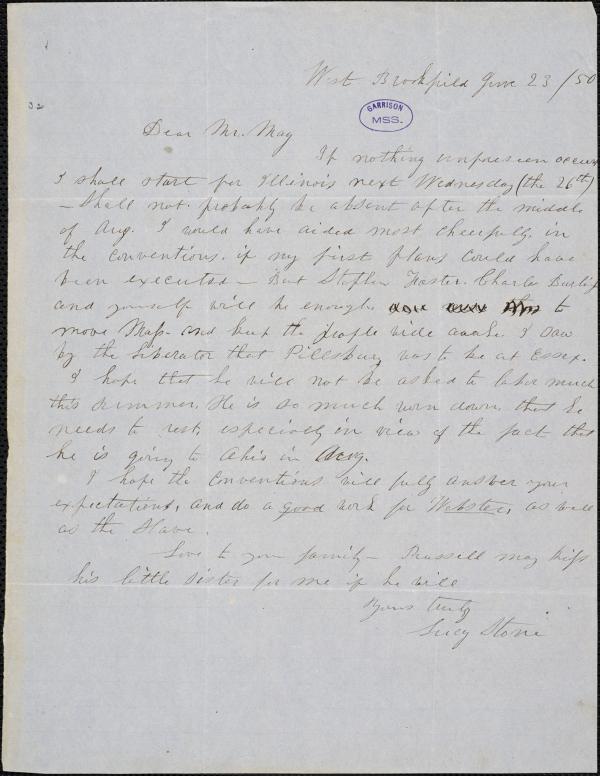 West Brookfield June 23/50
32
GARRISON
MSS.
Dear Mr. May
If nothing unforeseen occurs
I shall start for Illinois next Wednesday (the 26th)
– Shall not probably be absent after the middle
of Aug. I would have aided most cheerfully in
the conventions, if my first plans could have
been executed – But Stephen Foster, Charles Burleigh
and yourself will be enough to
move Mass. and keep the people wide awake. I saw
by the Liberator that Pillsbury was to be at Essex.
I hope that he will not be asked to labor much
this summer. He is so much worn down, that he
needs to rest, especially in view of the fact that
he is going to Ohio in Aug.
I hope the conventions will fully answer your
expectations, and do a good work for Webster, as well
as the Slave.
Love to your family – Russell may kiss
his little sister for me if he will
Yours truly
Lucy Stone